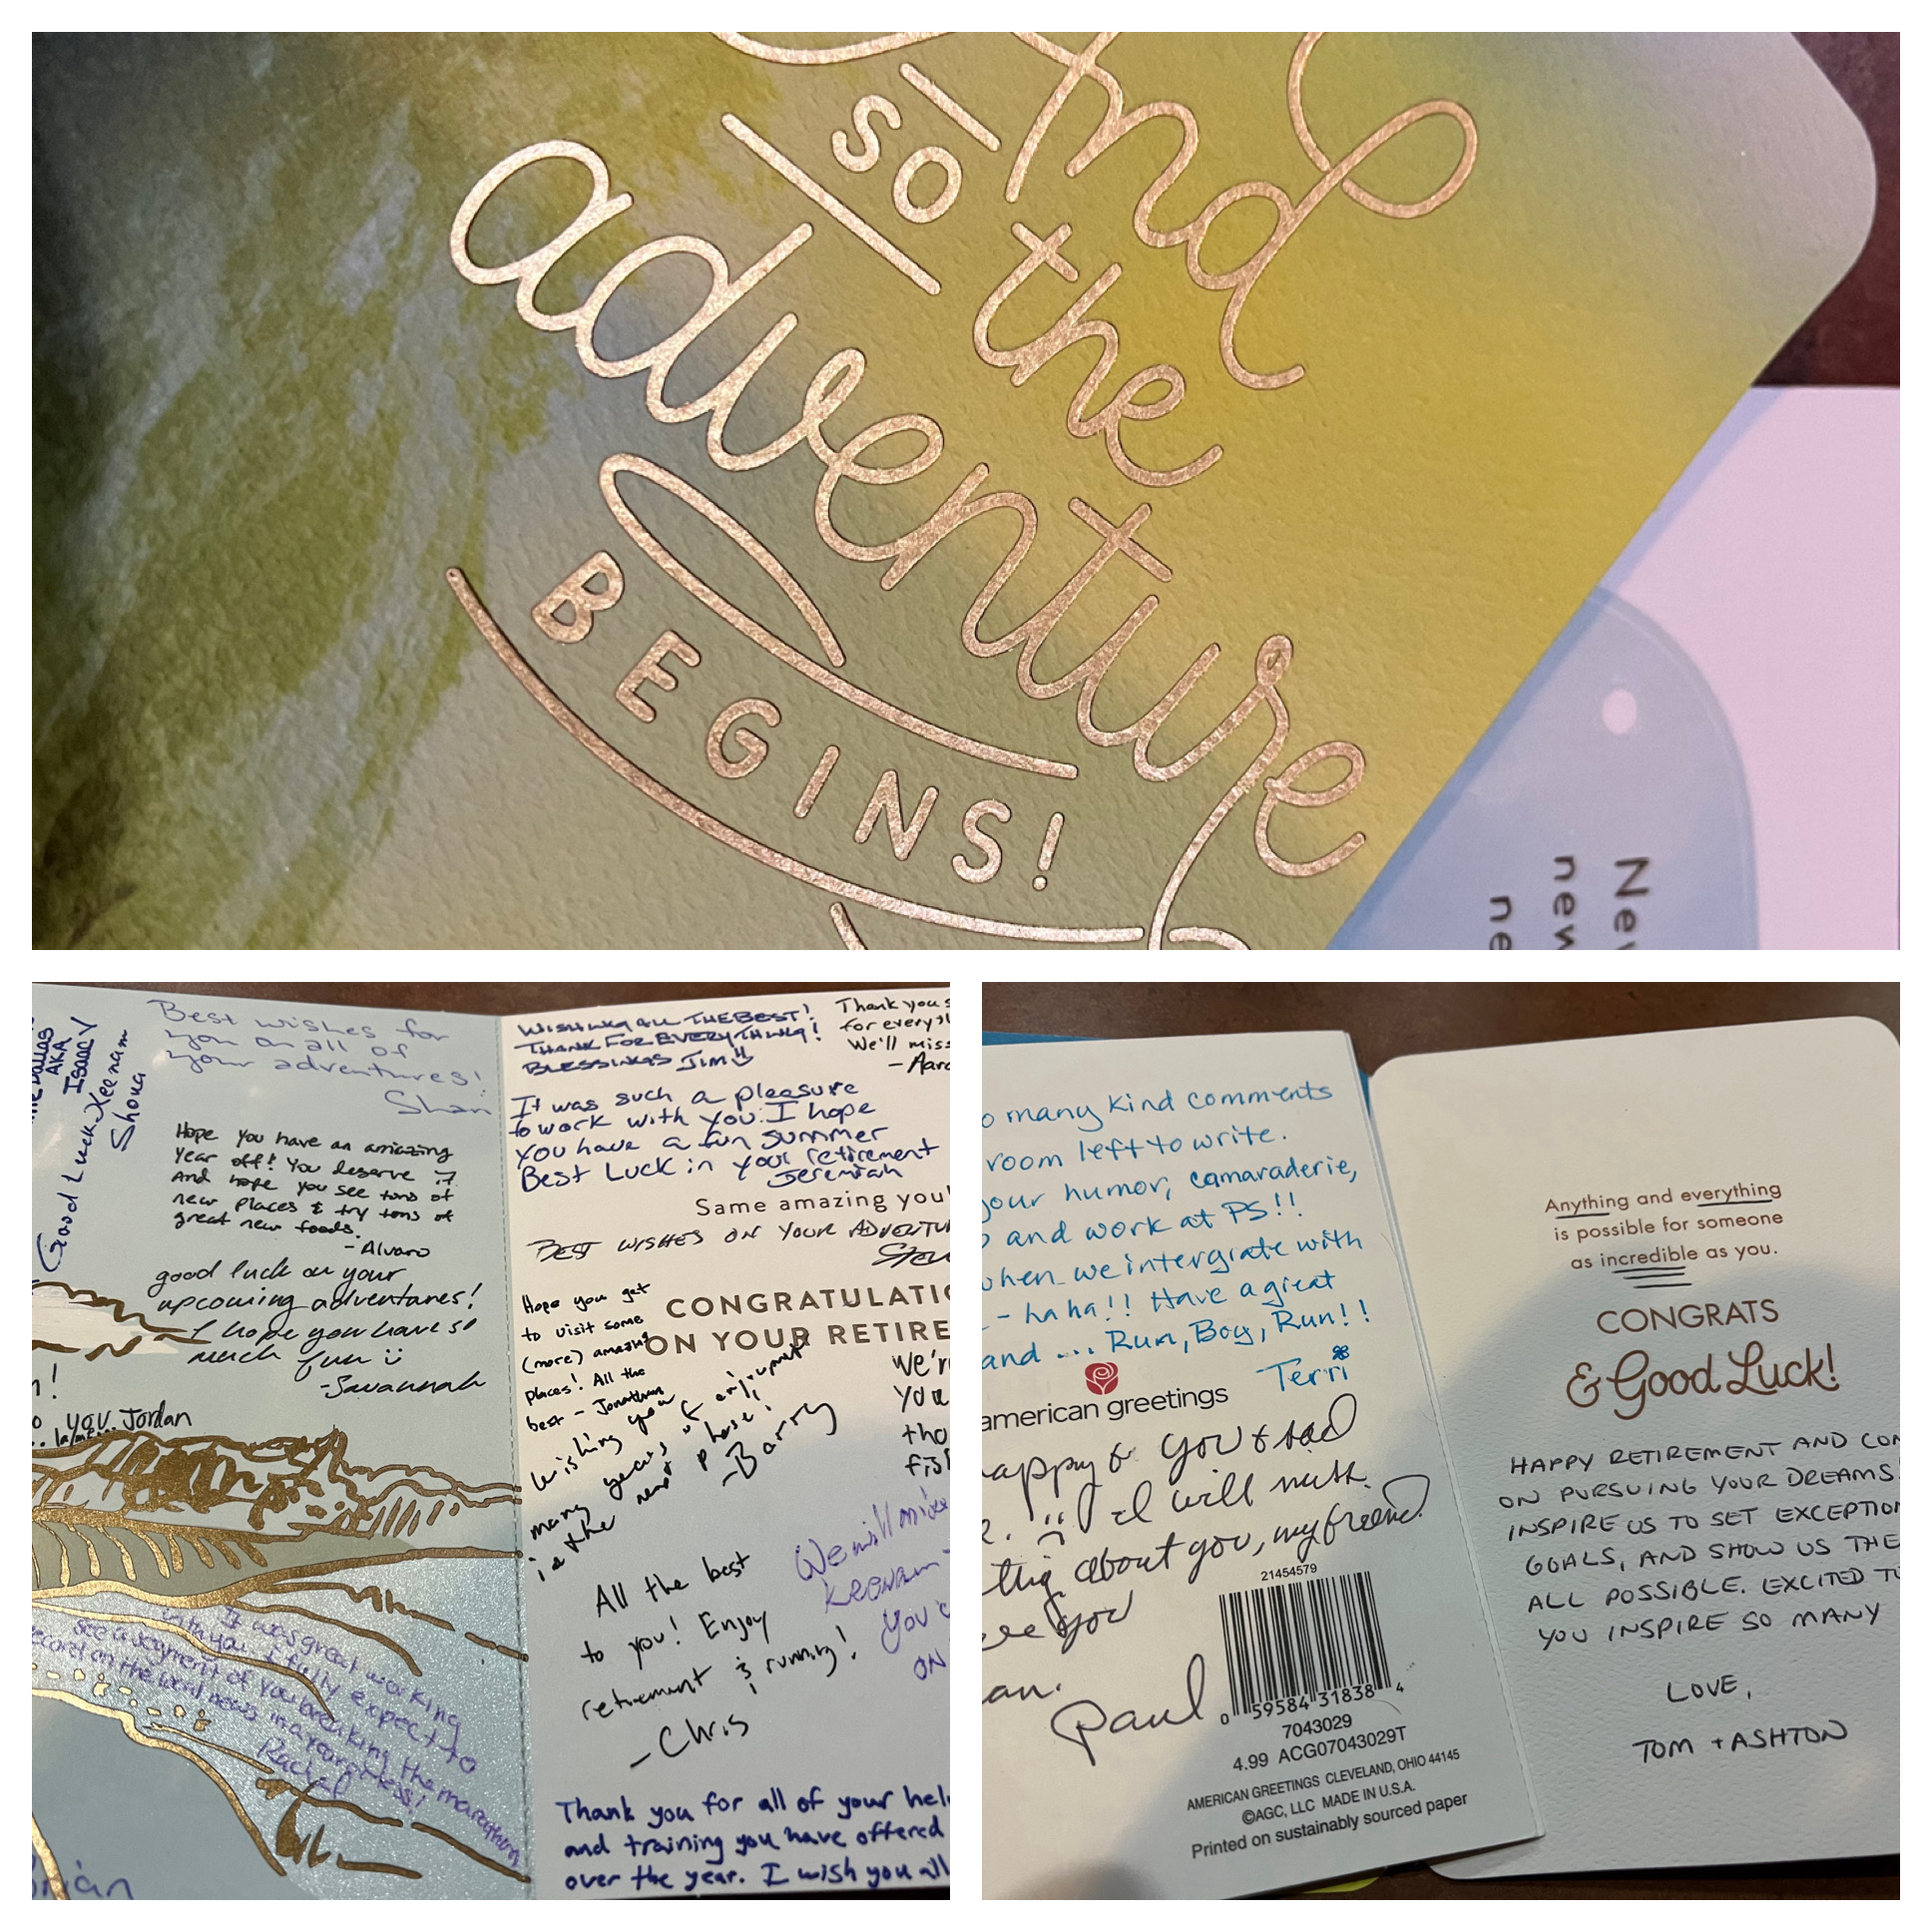 And
SO the
adventure
BEGINS!
New
new
ne
AKA
Isaac
Good Luck Keenam
Shoua
Best wishes for
you on all of
your adventures!
Shan
Hope you have an amazing
Year off! You deserve it
And hope you see tons of
new places & try tons of
great new foods.
-Alvaro
good luck on your
upcoming adventures!
I hope you have so
much fun
-Savannah
you. Jordan
It was great working
with you & fully expect to
see a segment of you breaking the marathon
record on the world news in a year or less!
Rachel
rian
WISHING ALL THE BEST!
THANK FOR EVERYTHING!
BLESSINGS JIM
Thank you s
for everyt
We'll miss
- Aaro
It was such a pleasure
to work with you. I hope
you have a fun summer
Best Luck in your retirement
Jeremiah
Same amazing you
BEST WISHES ON YOUR ADVENTU
Steve
Hope you get
to visit some
(more) amazing
places! All the
best - Jonathan
CONGRATULATIO
ON YOUR RETIRE
we're
you
tho
fis
wishing you
many years of enjoyment
in the next phase!
-Barry
We will miss
Keenam
You'
ON
All the best
to you! Enjoy
retirement & running!
- Chris
Thank you for all of your hel
and training you have offered
over the year. I wish you all
o many kind comments
room left to write.
your humor, camaraderie,
and work at PS!!
when we intergrate with
- haha!! Have a great
and ... Run, Boy, Run!!
Terri
american greetings
appy for you & sad
I will miss
thing about you, my friend.
see you
an.
Paul
21454579
0 59584 31838 4
7043029
4.99 ACG07043029T
AMERICAN GREETINGS CLEVELAND, OHIO 44145
©AGC, LLC MADE IN U.S.A.
Printed on sustainably sourced paper
Anything and everything
is possible for someone
as incredible as you.
CONGRATS
& Good Luck!
HAPPY RETIREMENT AND CON
ON PURSUING YOUR DREAMS!
INSPIRE US TO SET EXCEPTION
GOALS, AND SHOW US THE
ALL POSSIBLE. EXCITED TO
YOU INSPIRE SO MANY
LOVE,
TOM + ASHTON